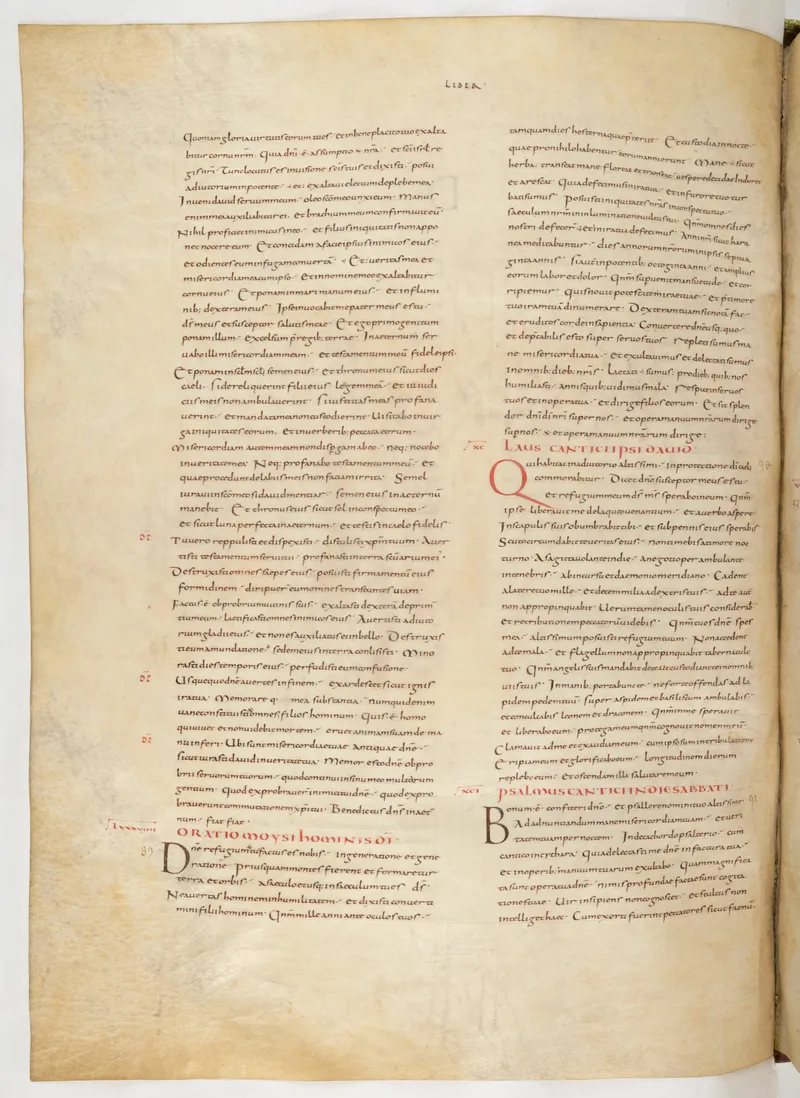 LIBER
Quoniam gloria uirtutis eorum tu es· Et in beneplacito tuo exalta
bitur cornu nr̄m· Quia dn̄i ē assumptio nr̄a· et sc̄i isrl̄ re
gis nr̄i· Tunc locutus es in uisione sc̄is tuis et dixisti· posui
adiutorium in potente· et exaltaui electum de plebe mea·
Inueni dauid seruum meum· oleo sc̄o meo unxi eum· Manus
enim mea auxiliabitur ei· et brachium meum confirmauit eū·
Nihil proficiet inimicus in eo· et filius iniquitatis non appo
net nocere eum· Et concidam a facie ipsius inimicos eius·
et odientes eum in fugam conuertā· Et ueritas mea et
misericordia mea cum ipso· Et in nomine meo exaltabitur
cornu eius· Et ponam in mari manum eius· et in flumi
nib; dexteram eius· Ipse inuocabit me pater meus es tu·
ds̄ meus et susceptor salutis meae· Et ego primogenitum
ponam illum· excelsum p̄ regib; terrae· In aeternum ser
uabo illi misericordiam meam· et testamentum meū fidele ipsi·
Et ponam in sc̄lm sc̄li semen eius· et thronum eius sicut dies
caeli· Si dereliquerint filii eius legem meā· et in iudi
ciis meis non ambulauerint· Si iustitias meas profana
uerint· et mandata mea non custodierint· Uisitabo in uir
ga iniquitates eorum· et in uerberib; peccata eorum·
Misericordiam autem meam non dispergam ab eo· neq; nocebo
in ueritate mea· Neq; profanabo testamentum meū· et
quae procedunt de labiis meis non faciam irrita· Semel
iuraui in sc̄o meo si dauid mentiar· semen eius in aeternū
manebit· Et thronus eius sicut sol in conspectu meo·
et sicut luna perfecta in aeternum· et testis in caelo fidelis·
Tu uero reppulisti et despexisti· distulisti xp̄m tuum· Auer
tisti testamentum serui tui· profanasti in terra sc̄uarium ei·
Destruxisti omnes saepes eius· posuisti firmamentū eius
formidinem· diripuer̄ eum omnes transeuntes uiam·
Factus ē obprobrium uicinis suis· exaltasti dexterā deprim̄
tium eum· laetificasti omnes inimicos eius· Auertisti adiuto
rium gladii eius· et non es auxiliatus ei in bello· Destruxis
ti eum a mundatione· sedem eius in terra conlisisti· Mino
rasti dies temporis eius· perfudisti eum confusione·
Usquequo dn̄e auertis in finem· exardescet sicut ignis
ira tua· Memorare q̄ mea substantia· numquid enim
uane constituisti omnes filios hominum· Quis ē homo
qui uiuet et non uidebit mortem· eruet animam suam de ma
nu inferi· Ubi sunt misericordiae tuae antiquae dn̄e·
sicut iurasti dauid in ueritate tua· Memor esto dn̄e obpro
brii seruorum tuorum· quod continui in sinu meo multarum
gentium· Quod exprobrauer̄ inimici tui dn̄e· quod expro
brauerunt commutationem xp̄i tui· Benedictus dn̄s in aet̄
num· fiat fiat·
LXXXVIIII ORATIO MOYSI HOMINIS DI·
Dn̄e refugium factus es nobis· in generatione et gene
ratione· Priusquam montes fierent et formaretur
terra et orbis· A saeculo et usq; in saeculum tu es ds̄·
Ne auertas hominem in humilitatem· et dixisti conuerti
mini filii hominum· Qn̄m mille anni ante oculos tuos·
tamquam dies hesterna quae p̄teriit· Et custodia in nocte·
quae pro nihilo habentur eorum anni erunt· Mane sicut
herba transeat mane floreat et transeat· uespere decidat induret
et arescat· Quia defecimus in ira tua· et in furore tuo tur
bati sumus· Posuisti iniquitates nr̄as in conspectu tuo·
saeculum nr̄m in inluminatione uultus tui· Qn̄m omnes dies
nostri defecer̄· et in ira tua defecimus· Anni nr̄i sicut hara
nea meditabuntur· dies annorum nr̄orum in ipsis septua
ginta annis· Si aut̄ in potentatib; octoginta anni· et amplius
eorum labor et dolor· Qn̄m superuenit mansuetudo· et cor
ripiemur· Quis nouit potestatem irae tuae· et p̄ timore
tuo iram tuā dinumerare· Dexteram tuam sic notā fac·
et eruditos corde in sapientia· Conuertere dn̄e usq; quo·
et depcabilis esto super seruos tuos· Repleti sumus ma
ne misericordia tua· et exultauimus et delectati sumus
in omnib; dieb; nr̄is· Laetati sumus p̄ dieb; quib; nos
humiliasti· annis quib; uidimus mala· Respice in seruos
tuos et in opera tua· et dirige filios eorum· Et sit splen
dor dn̄i di nr̄i super nos· et opera manuum nr̄arum dirige
sup nos· et opera manuum nr̄arum dirige:
XC LAUS CANTICI IPSI DAUID·
Qui habitat in adiutorio altissimi· In protectione di caeli
commorabitur· Dicet dn̄o susceptor meus es tu·
et refugium meum ds̄ ms̄ sperabo in eum· Qn̄m
ipse liberauit me de laqueo uenantium· et a uerbo aspero·
In scapulis suis obumbrabit tibi· et sub pennis eius sperabis·
Scuto circumdabit te ueritas eius· non timebis a timore noc
turno· A sagitta uolante in die· a negotio perambulante
in tenebris· ab incursu et daemonio meridiano· Cadent
a latere tuo mille· et decem milia a dextris tuis· ad te aut̄
non appropinquabit· Uerumtamen oculis tuis considerab̄·
et retributionem peccatorū uidebis· Qn̄m tu es dn̄e spes
mea· altissimum posuisti refugium tuum· Non accedent
ad te mala· et flagellum non appropinquabit tabernaculo
tuo· Qn̄m angelis suis mandabit de te· ut custodiant te in omnib;
uiis tuis· In manib; portabunt te· ne forte offendas ad la
pidem pedem tuū· Super aspidem et basiliscum ambulabis·
et conculcabis leonem et draconem· Qn̄m in me sperauit
et liberabo eum· protegam eum qn̄m cognouit nomen meū·
Clamauit ad me et exaudiam eum· cum ipso sum in tribulatione
Eripiam eum et glorificabo eum· Longitudinem dierum
replebo eum· Et ostendam illi salutarem eum·
XCI PSALMUS CANTICI IN DIE SABBATI·
Bonum ē confiteri dn̄o· et psallere nomini tuo altissime·
Ad adnuntiandum mane misericordiam tuam· et ueri
tatem tuam per noctem· In decachordo psalterio· cum
cantico in cythara· Quia delectasti me dn̄e in factura tua·
et in operib; manuum tuarum exultabo· Quam magnifica
ta sunt opera tua dn̄e· nimis profundae factae sunt cogita
tiones tuae· Uir insipiens non cognoscet· et stultus non
intelleget haec· Cum exorti fuerint peccatores sicut faenū·